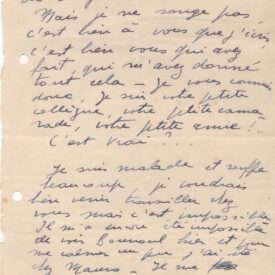 Mais je ne songe pas
c'est bien à vous que j'écris
c'est bien vous qui avez
fait qui m'avez donné
tout cela - Je vous connais
donc, je suis votre petite
collègue, votre petite cama-
rade, votre petite amie!..
C'est vrai?
Je suis malade et souffre
beaucoup, je voudrais
bien venir travailler chez
vous mais c'est impossible
Il m'a encore été impossible
de voir hier et pour
me calmer un peu j'ai été
chez - Il ne